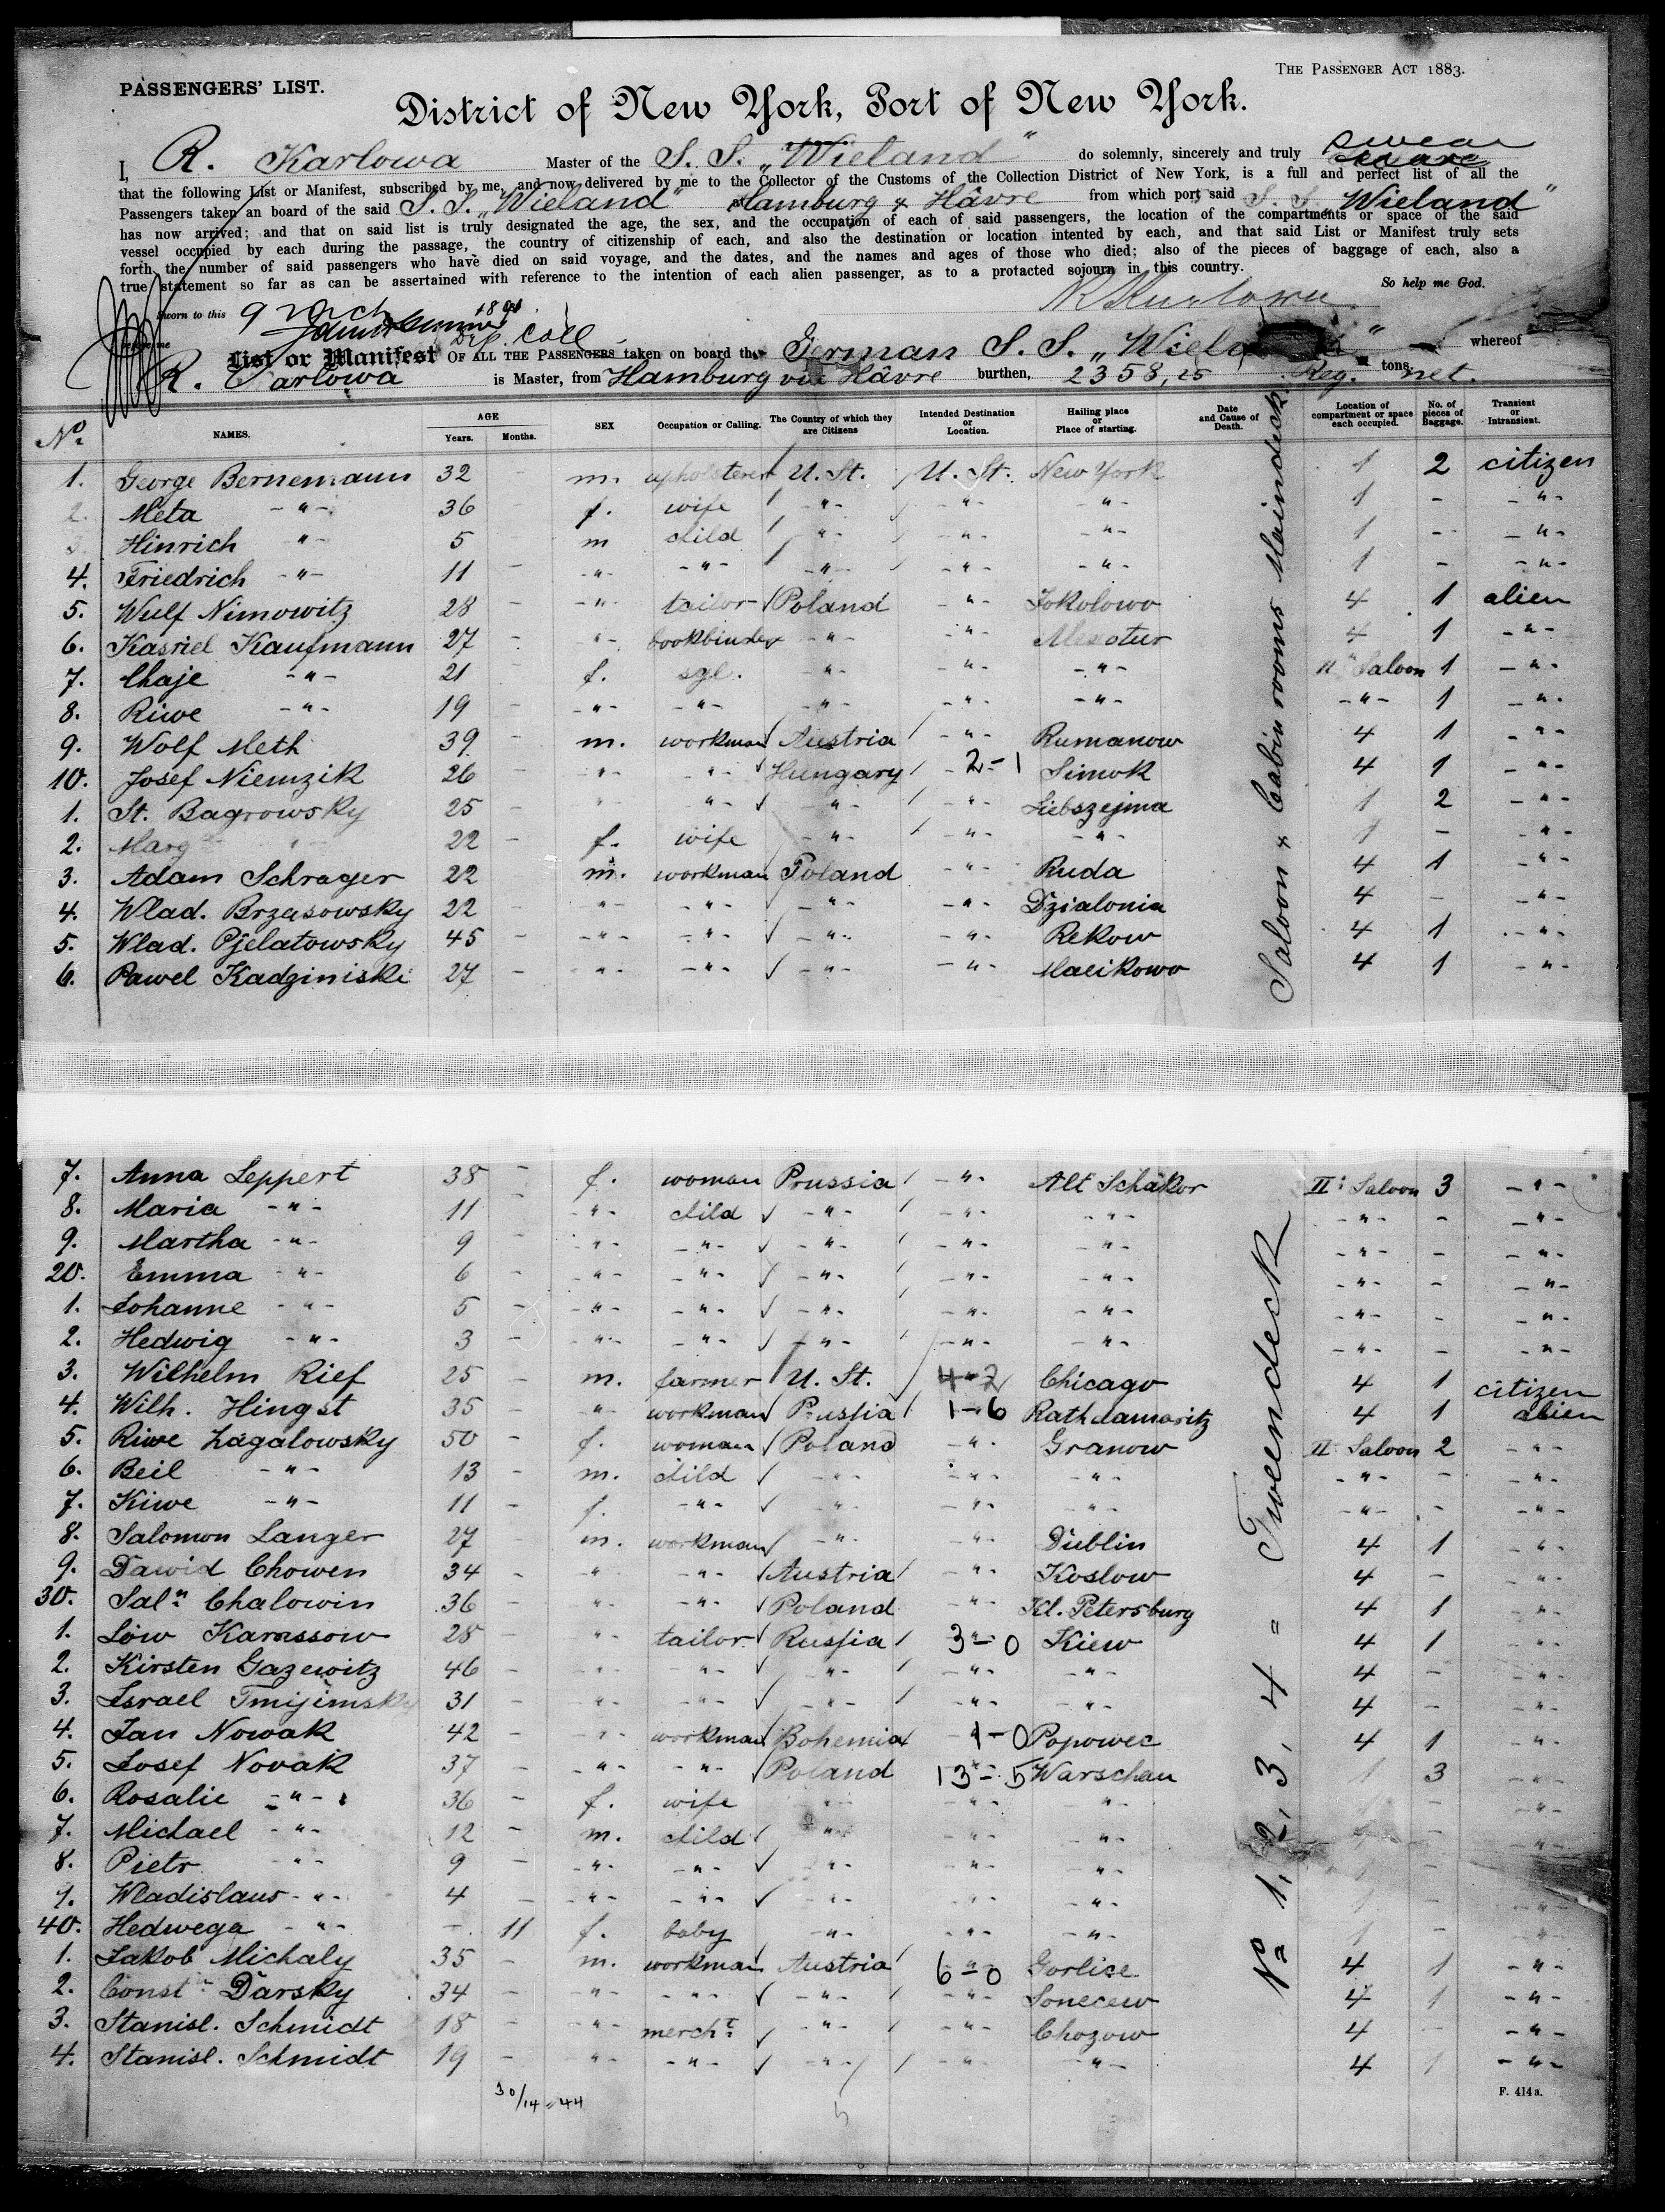 THE PASSENGER ACT 1883.
PASSENGERS' LIST.
District of New York, Port of New York.
I, R. Karlowa Master of the S. S. „Wieland" do solemnly, sincerely and truly swear
that the following List or Manifest, subscribed by me, and now delivered by me to the Collector of the Customs of the Collection District of New York, is a full and perfect list of all the
Passengers taken an board of the said S. S. „Wieland" Hamburg & Hâvre from which port, said S. S. Wieland"
has now arrived; and that on said list is truly designated the age, the sex, and the occupation of each of said passengers, the location of the compartments or space of the said
vessel occupied by each during the passage, the country of citizenship of each, and also the destination or location intented by each, and that said List or Manifest truly sets
forth the number of said passengers who have died on said voyage, and the dates, and the names and ages of those who died; also of the pieces of baggage of each, also a
true statement so far as can be ascertained with reference to the intention of each alien passenger, as to a protacted sojourn in this country.
So help me God.
R Karlowa
Sworn to this 9 1891
Dep. Coll
List or Manifest OF ALL THE PASSENGERS taken on board the German S. S. „Wiel " whereof
R. Carlowa is Master, from Hamburg via Hâvre burthen, 2358,25 Reg. tons. net.
No. NAMES. AGE Years. Months. SEX Occupation or Calling. The Country of which they are Citizens Intended Destination or Location. Hailing place or Place of starting. Date and Cause of Death. Location of compartment or space each occupied. No. of pieces of Baggage. Transient or Intransient.
1. George Bernemann 32 - m. upholsterer U. St. U. St. New York 1 2 citizen
2. Meta -"- 36 - f. wife -"- -"- -"- 1 - -"-
3. Hinrich -"- 5 m child -"- -"- -"- 1 - -"-
4. Friedrich -"- 11 - -"- -"- -"- -"- -"- 1 - -"-
5. Wulf Nimowitz 28 - -"- tailor Poland -"- Sokolowo 4 1 alien
6. Kasriel Kaufmann 27 - -"- bookbinder -"- -"- 4 1 -"-
7. Chaje -"- 21 f. sgl. -"- -"- -"- II. Saloon 1 -"-
8. Riwe -"- 19 - -"- -"- -"- -"- -"- -"- 1 -"-
9. Wolf Meth 39 - m. workman Austria -"- Rumanow 4 1 -"-
10. Josef Niemzik 26 - -"- -"- Hungary 2-1 Simok 4 1 -"-
1. St. Bagrowsky 25 - -"- -"- -"- -"- Liebszejma 1 2 -"-
2. Marg -"- 22 - f. wife -"- -"- -"- 1 - -"-
3. Adam Schrager 22 m. workman Poland -"- Ruda 4 1 -"-
4. Wlad. Brzasowsky 22 - -"- -"- -"- -"- Dzialonia 4 - -"-
5. Wlad. Pjelatowsky 45 - -"- -"- -"- -"- Rekow 4 1 -"-
6. Pawel Kadziniski 27 - -"- -"- -"- -"- Malikowo 4 1 -"-
Saloon & Cabin rooms Maindeck
7. Anna Leppert 38 - f. woman Prussia -"- Alt Schäkor II. Saloon 3 -"-
8. Maria -"- 11 -"- child -"- -"- -"- -"- - -"-
9. Martha -"- 9 -"- -"- -"- -"- -"- -"- - -"-
20. Emma -"- 6 - -"- -"- -"- -"- -"- -"- - -"-
1. Johanne -"- 5 - -"- -"- -"- -"- -"- -"- -"-
2. Hedwig -"- 3 - -"- -"- -"- -"- -"- -"- - -"-
3. Wilhelm Rief 25 - m. farmer U. St. 4-2 Chicago 4 1 citizen
4. Wilh. Hingst 35 - -"- workman Prussia 1-6 Rathdamnitz 4 1 alien
5. Riwe Lagalowsky 50 - f. woman Poland -"- Granow II. Saloon 2 -"-
6. Beil -"- 13 - m. child -"- -"- -"- -"- - -"-
7. Kiwe -"- 11 - f. -"- -"- -"- -"- -"- - -"-
8. Salomon Langer 27 - m. workman -"- -"- Dublin 4 1 -"-
9. Dawid Chowen 34 - -"- -"- Austria -"- Koslow 4 - -"-
30. Saln. Chalowin 36 - -"- -"- Poland -"- Kl. Petersburg 4 1 -"-
1. Löw Karassow 28 - -"- tailor Russia 3-0 Kiew 4 1 -"-
2. Kirsten Gazewitz 46 - -"- -"- -"- -"- -"- 4 - -"-
3. Israel Tmijimsky 31 - -"- -"- -"- -"- -"- 4 - -"-
4. Jan Nowak 42 - -"- workman Bohemia 1-0 Popowec 4 1 -"-
5. Josef Novak 37 - -"- -"- Poland 13-5 Warschau 1 3 -"-
6. Rosalie -"- 36 - f. wife -"- -"- -"- - -"-
7. Michael -"- 12 - m. child -"- -"- -"- - -"-
8. Pietr -"- 9 - -"- -"- -"- -"- -"- 1 - -"-
9. Wladislaus -"- 4 - -"- -"- -"- -"- -"- 1 - -"-
40. Hedwega -"- - 11 f. baby -"- -"- -"- 1 - -"-
1. Jakob Michaly 35 - m. workman Austria 6-0 Gorlice 4 1 -"-
2. Constn. Darsky 34 - -"- -"- -"- -"- Sonecew 4 1 -"-
3. Stanisl. Schmidt 18 - -"- mercht. -"- -"- Chozow 4 -"-
4. Stanisl. Schmidt 19 - -"- -"- -"- -"- -"- 4 1 -"-
No. 1, 2, 3, 4 = Tweendeck
30/14=44
F. 414a.